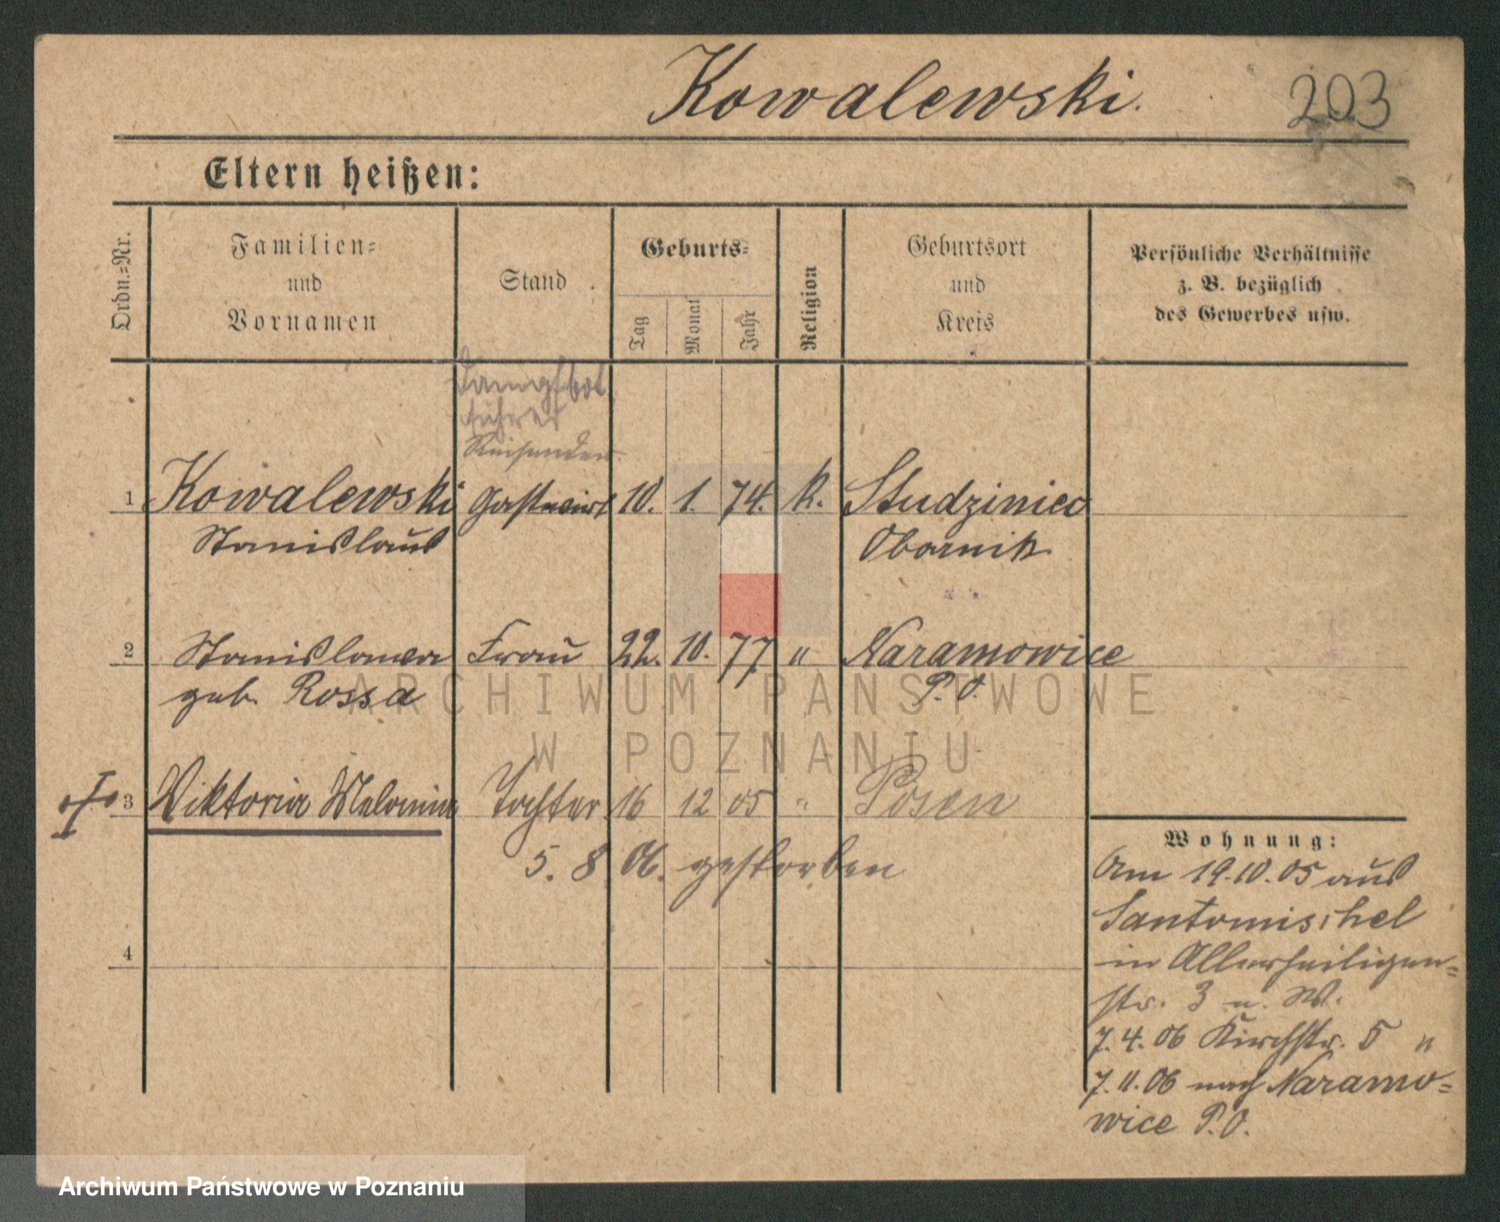 Kowalewski.
203
Eltern heißen:
Ordn.=Nr.
Familien=
und
Vornamen
Stand
Geburts=
Tag
Monat
Jahr
Religion
Geburtsort
und
Kreis
Persönliche Verhältnisse
z. B. bezüglich
des Gewerbes usw.
Dampfbot
führer
Reisender
1 Kowalewski Gastwirt 10. 1. 74. k. Studziniec
Stanislaus Obornik
2 Stanislawa Frau 22. 10. 77 " Naramowice
geb. Rossa P. O.
3 Viktoria Melanie Tochter 16 12 05 " Posen
5. 8 06. gestorben
4
Wohnung:
Am 19.10.05 aus
Santomischel
in Allerheiligen=
str. 3 u. W.
7.4.06 Kirchstr. 5 "
7.11.06 nach Naramo=
wice P.O.
ARCHIWUM PAŃSTWOWE
W POZNANIU
Archiwum Państwowe w Poznaniu